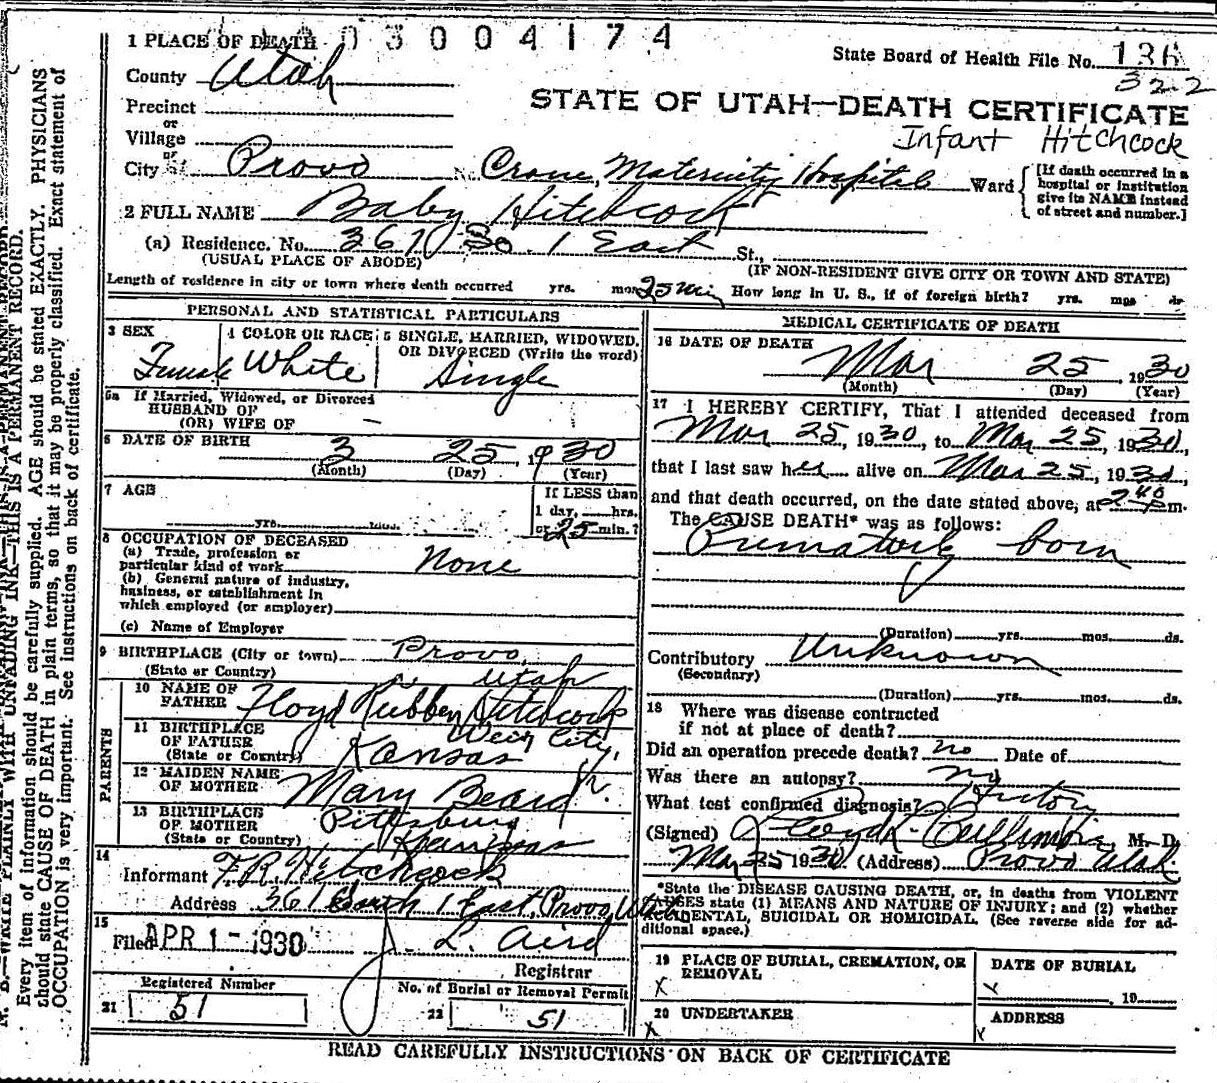 03004174
1 PLACE OF DEATH
State Board of Health File No. 136
322
County Utah
Precinct
or
STATE OF UTAH—DEATH CERTIFICATE
Village
Infant Hitchcock
or
City Provo No. Crane Maternity Hospital Ward
[If death occurred in a hospital or institution give its NAME instead of street and number.]
2 FULL NAME Baby Hitchcock
(a) Residence. No. 361 So. 1 East St.,
(USUAL PLACE OF ABODE) (IF NON-RESIDENT GIVE CITY OR TOWN AND STATE)
Length of residence in city or town where death occurred yrs. mos. 25 min How long in U. S., if of foreign birth? yrs. mos ds
PERSONAL AND STATISTICAL PARTICULARS
3 SEX
Female
4 COLOR OR RACE
White
5 SINGLE, MARRIED, WIDOWED, OR DIVORCED (Write the word)
Single
5a If Married, Widowed, or Divorced
HUSBAND OF
(OR) WIFE OF —
6 DATE OF BIRTH 3 25, 1930
(Month) (Day) (Year)
7 AGE
yrs. mos.
If LESS than
1 day, hrs.
or 25 min.?
8 OCCUPATION OF DECEASED
(a) Trade, profession or
particular kind of work None
(b) General nature of industry,
business, or establishment in
which employed (or employer)
(c) Name of Employer
9 BIRTHPLACE (City or town) Provo,
(State or Country) Utah
PARENTS
10 NAME OF FATHER Floyd Rubben Hitchcock
11 BIRTHPLACE OF FATHER Weir City,
(State or Country) Kansas
12 MAIDEN NAME OF MOTHER Mary Beard
13 BIRTHPLACE OF MOTHER Pittsburg
(State or Country) Kansas
14
Informant F.R. Hitchcock
Address 361 South 1 East, Provo, Utah
15
Filed APR 1 - 1930 J. L. Aird
Registrar
Registered Number
No. of Burial or Removal Permit
21 51
22 51
MEDICAL CERTIFICATE OF DEATH
16 DATE OF DEATH
Mar 25, 1930
(Month) (Day) (Year)
17 I HEREBY CERTIFY, That I attended deceased from
Mar 25, 1930, to Mar 25, 1930,
that I last saw her alive on Mar 25, 1930,
and that death occurred, on the date stated above, at 2 40 p m.
The CAUSE DEATH* was as follows:
Prematurely born
(Duration) yrs. mos. ds.
Contributory Unknown
(Secondary)
(Duration) yrs. mos. ds.
18 Where was disease contracted
if not at place of death?
Did an operation precede death? no Date of
Was there an autopsy? no
What test confirmed diagnosis? History
(Signed) Lloyd L. Cullimore, M. D.
Mar 25 1930. (Address) Provo Utah.
*State the DISEASE CAUSING DEATH, or, in deaths from VIOLENT
CAUSES state (1) MEANS AND NATURE OF INJURY; and (2) whether
ACCIDENTAL, SUICIDAL OR HOMICIDAL. (See reverse side for ad-
ditional space.)
19 PLACE OF BURIAL, CREMATION, OR REMOVAL
X
DATE OF BURIAL
x , 19
20 UNDERTAKER
x
ADDRESS
x
READ CAREFULLY INSTRUCTIONS ON BACK OF CERTIFICATE
N. B.—WRITE PLAINLY WITH UNFADING INK—THIS IS A PERMANENT RECORD.
Every item of information should be carefully supplied. AGE should be stated EXACTLY. PHYSICIANS
should state CAUSE OF DEATH in plain terms, so that it may be properly classified. Exact statement of
OCCUPATION is very important. See instructions on back of certificate.